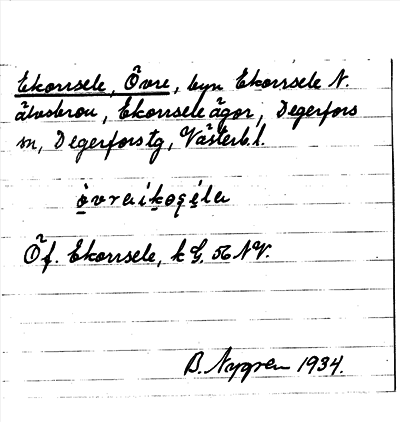 Ekorrsele, Övre, byn Ekorrsele N.
älvsbron, Ekorrsele ägor, Degerfors
sn, Degerfors tg, Västerb. l.
Öf. Ekorrsele, k G. 56 NV.
B. Nygren 1934.